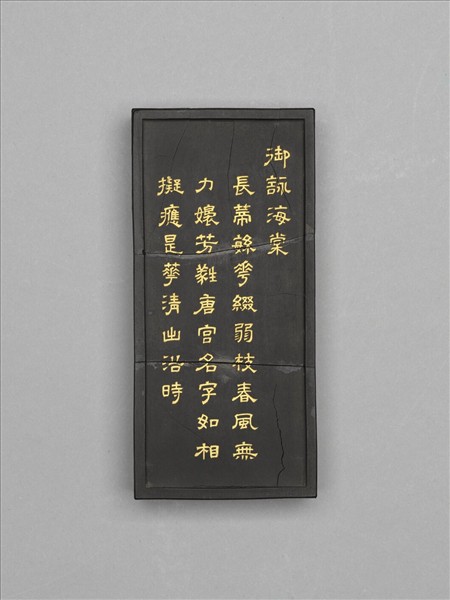 御詠海棠
長蒂緐花綴弱枝春風無
力嬝芳蕤唐宮名字如相
擬應是華清出浴時